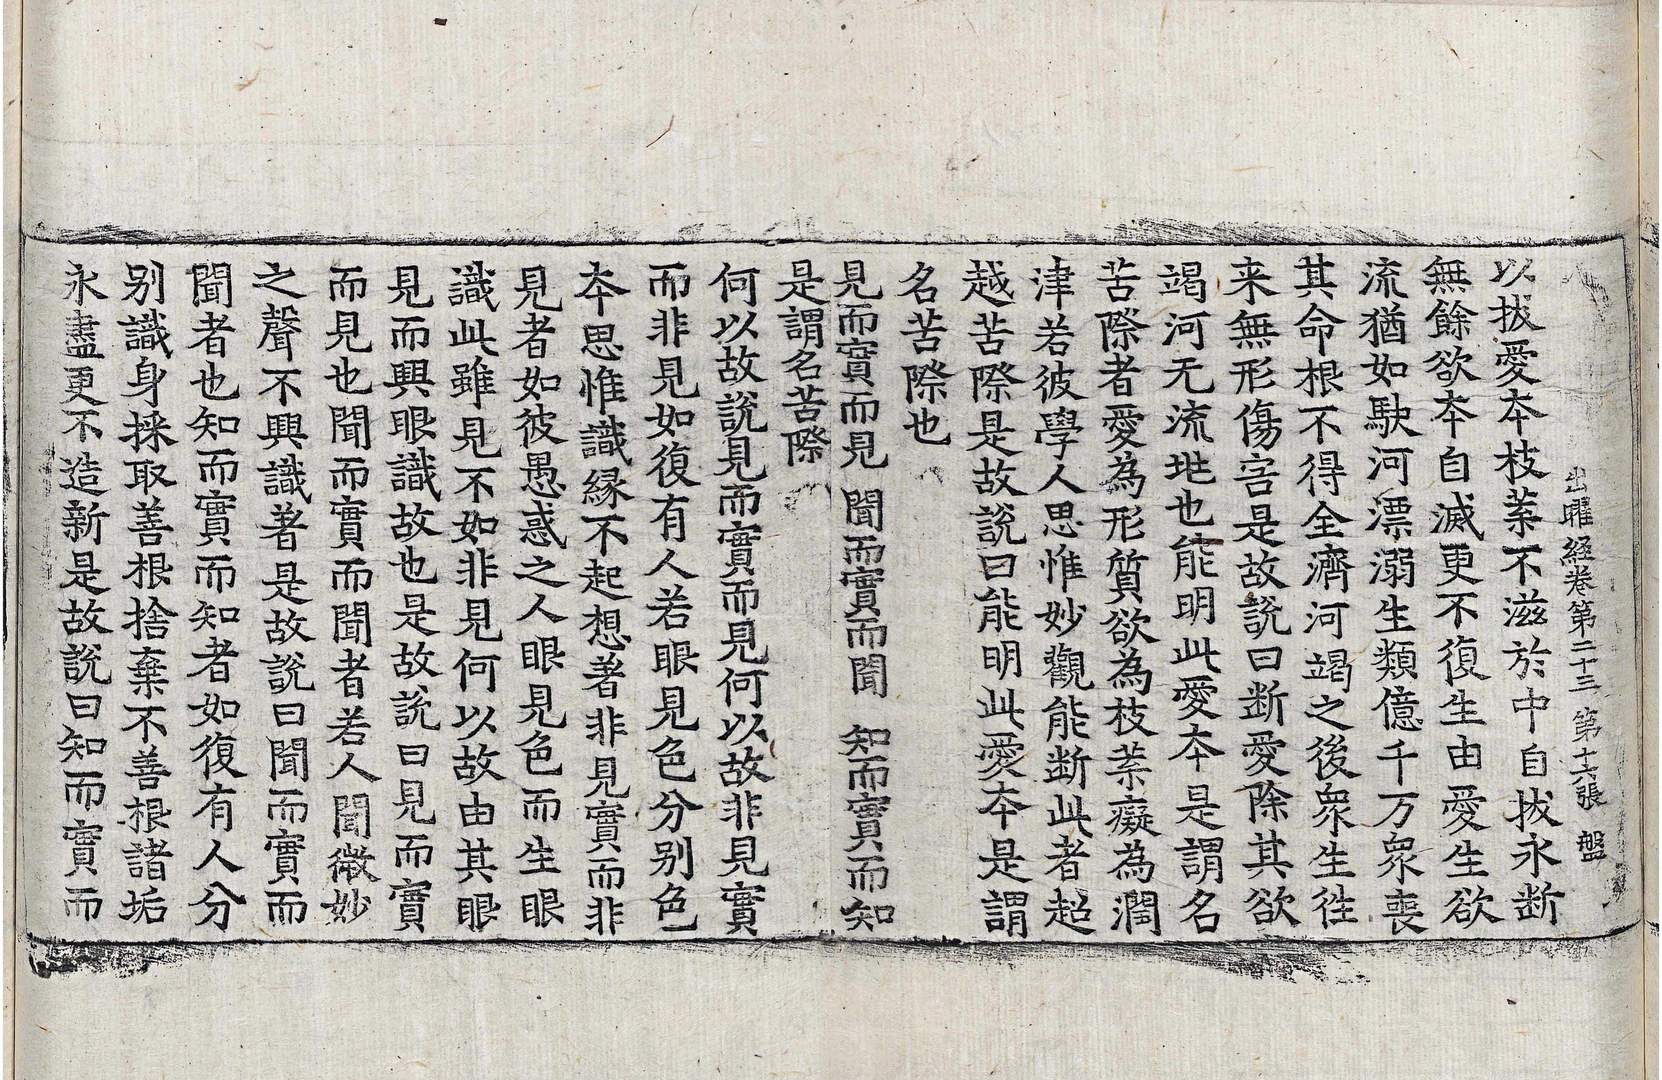 出曜経卷第二十三 第十六張 盤
以拔愛夲枝葉不滋於中自拔永断
無餘欲夲自滅更不復生由愛生欲
流猶如駃河漂溺生類億千万衆喪
其命根不得全濟河竭之後衆生徃
来無形傷害是故說曰断愛除其欲
竭河无流泄也能明此愛夲是謂名
苦際者愛為形質欲為枝葉癡為潤
津若彼學人思惟妙觀能断此者超
越苦際是故說曰能明此愛夲是謂
名苦際也
見而實而見 聞而實而聞 知而實而知
是謂名苦際
何以故說見而實而見何以故非見實
而非見如復有人若眼見色分别色
夲思惟識緣不起想著非見實而非
見者如彼愚惑之人眼見色而生眼
識此雖見不如非見何以故由其眼
見而興眼識故也是故說曰見而實
而見也聞而實而聞者若人聞微妙
之聲不興識著是故說曰聞而實而
聞者也知而實而知者如復有人分
别識身採取善根捨棄不善根諸垢
永盡更不造新是故說曰知而實而